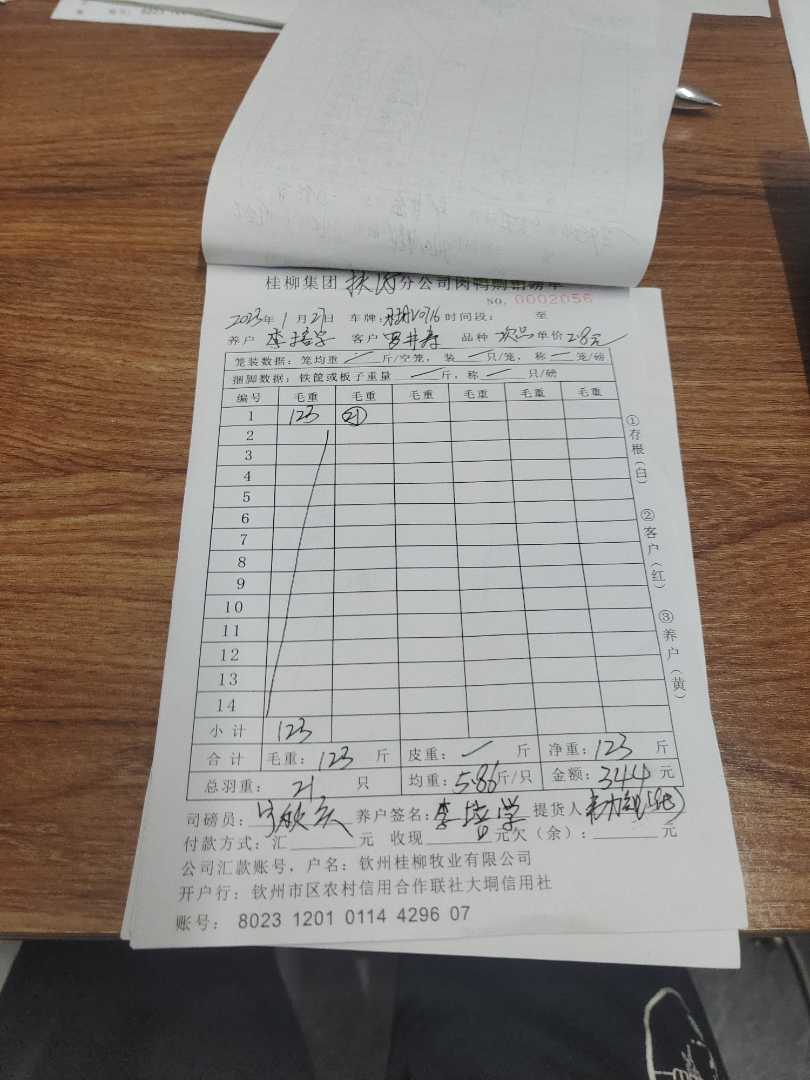 桂柳集团 扶绥 分公司肉鸭购销磅单
NO. 0002056
2023年 1 月 27日 车牌: 时间段: 至
养户 李培学 客户 品种 次品 单价 2.8元
笼装数据: 笼均重 一 斤/空笼, 装 一 只/笼, 称 一 笼/磅
捆脚数据: 铁筐或板子重量 一 斤, 称 一 只/磅
编号 毛重 毛重 毛重 毛重 毛重 毛重
1 123 21
2
3
4
5
6
7
8
9
10
11
12
13
14
小计 123
合计 毛重: 123 斤 皮重: 一 斤 净重: 123 斤
总羽重: 21 只 均重: 5.86 斤/只 金额: 344 元
司磅员: 养户签名: 李培学 提货人
付款方式: 汇 元 收现 元 欠(余): 元
公司汇款账号, 户名: 钦州桂柳牧业有限公司
开户行: 钦州市区农村信用合作联社大垌信用社
账号: 8023 1201 0114 4296 07
①存根(白)
②客户(红)
③养户(黄)